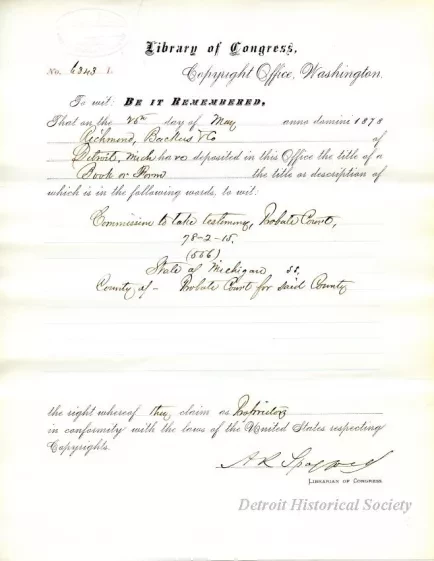 Library of Congress,
No. 6343 I.
Copyright Office, Washington.
To wit: BE IT REMEMBERED,
That on the 25th day of May anno domini 1878
Richmond, Backus & Co of
Detroit, Mich have deposited in this Office the title of a
Book or Form the title or description of
which is in the following words, to wit:
Commission to take testimony, Probate Court,
78-2-15.
(556)
State of Michigan SS.
County of - Probate Court for said County
the right whereof they claim as Proprietors
in conformity with the laws of the United States respecting
Copyrights.
A R Spofford
LIBRARIAN OF CONGRESS.
Detroit Historical Society